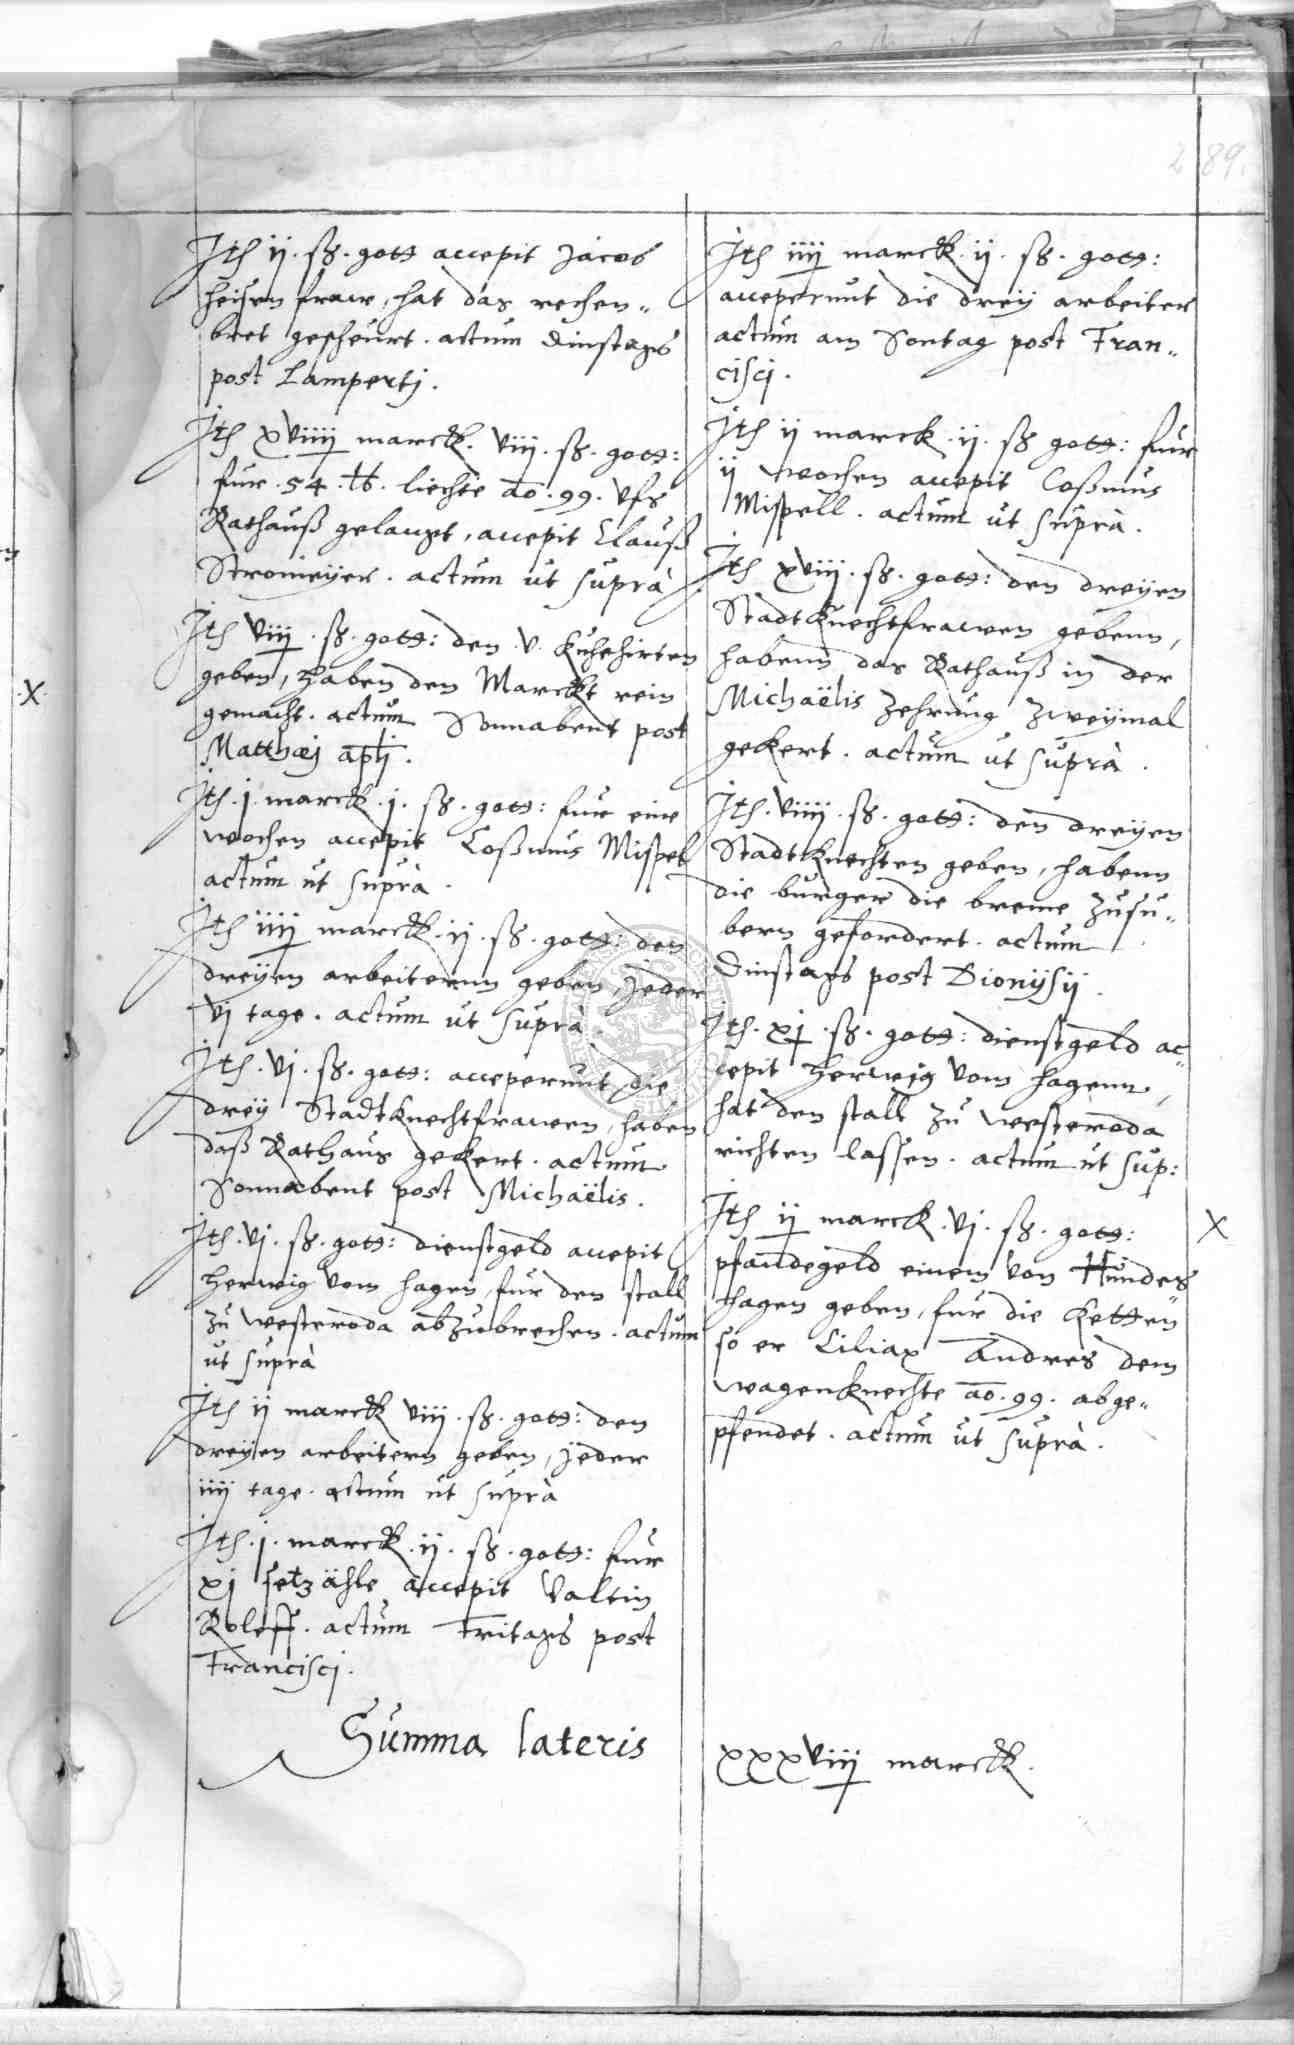 289.
Ith ij. sh. gott accepit Jacob
heisen fraw, hat das rechen„
bret gescheurt. actum dinstags
post Lamperti.
Ith xviiij marck. viij. sh. gott:
fur. 54. lb. liechte ao. 99. vfs
Rathauß gelanget, accepit Clauß
Stromeyer. actum ut suprà
Ith viij. sh. gott: den v. Kuhehirten
geben, haben den Marckt rein
gemacht. actum Sonnabent post
Matthæj aplj.
Ith. j. marck. j. sh. gott: fur eine
wochen accepit Coßmus Mispel
actum ut suprà.
Ith iiij marck. ij. sh. gott: den
dreyen arbeitern geben, jeder
vj tage. actum ut suprà.
Ith. vj. sh. gott: acceperunt die
drey Stadtknechtfrawen, haben
daß Rathaus gekert. actum
Sonnabent post Michaëlis.
Ith. vj. sh. gott: dienstgeld accepit
Herwig vom Hagen, fur den stall
zu westeroda abzubrechen. actum
ut suprà
Ith ij marck viij. sh. gott: den
dreyen arbeitern geben, jeder
iiij tage. actum ut suprà
Ith. j. marck. ij. sh. gott: fur
xj setzähle accepit Valtin
Roleff. actum Fritags post
Francisci.
Summa lateris
Ith iiij marck. ij. sh. gott:
acceperunt die drey arbeiter
actum am Sontag post Fran„
cisci.
Ith ij marck. ij. sh gott: fur
ij wochen accepit Coßmus
Mispell. actum ut suprà.
Ith xviij. sh. gott: den dreyen
Stadtknechtfrawen gebenn,
habenn das Rathauß in der
Michaëlis Zehrung zweymal
gekert. actum ut suprà.
Ith. viiij. sh. gott: den dreyen
Stadtknechten geben, habenn
die burger die breme zusu„
bern gefordert. actum
Dinstags post Dionysij.
Ith. xj. sh. gott: dienstgeld ac„
cepit Herwig vom Hagenn,
hat den stall zu westeroda
richten lassen. actum ut sup:
Ith ij marck. vj. sh. gott:
pfandegeld einem von Hundes„
hagen geben, fur die Ketten
so er Ciliax Andres dem
wagenknechte ao. 99. abge„
pfendet. actum ut suprà.
X
xxxviij marck.